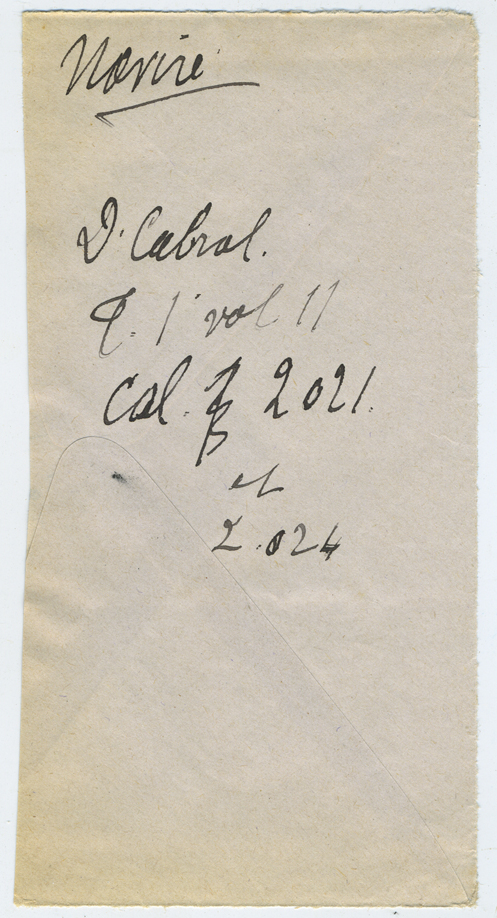 Navire
D. Cabral.
T. 1 vol 11
Cal. 2021.
et
2.024